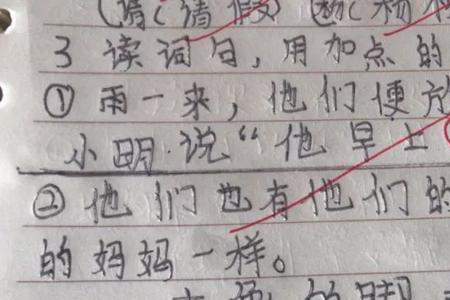 请(请假)
杨(杨
3 读词句,用加点的
① 雨一来,他们便放
小明·说“他早上
② 他们也有他们的
的妈妈一样。
的脚